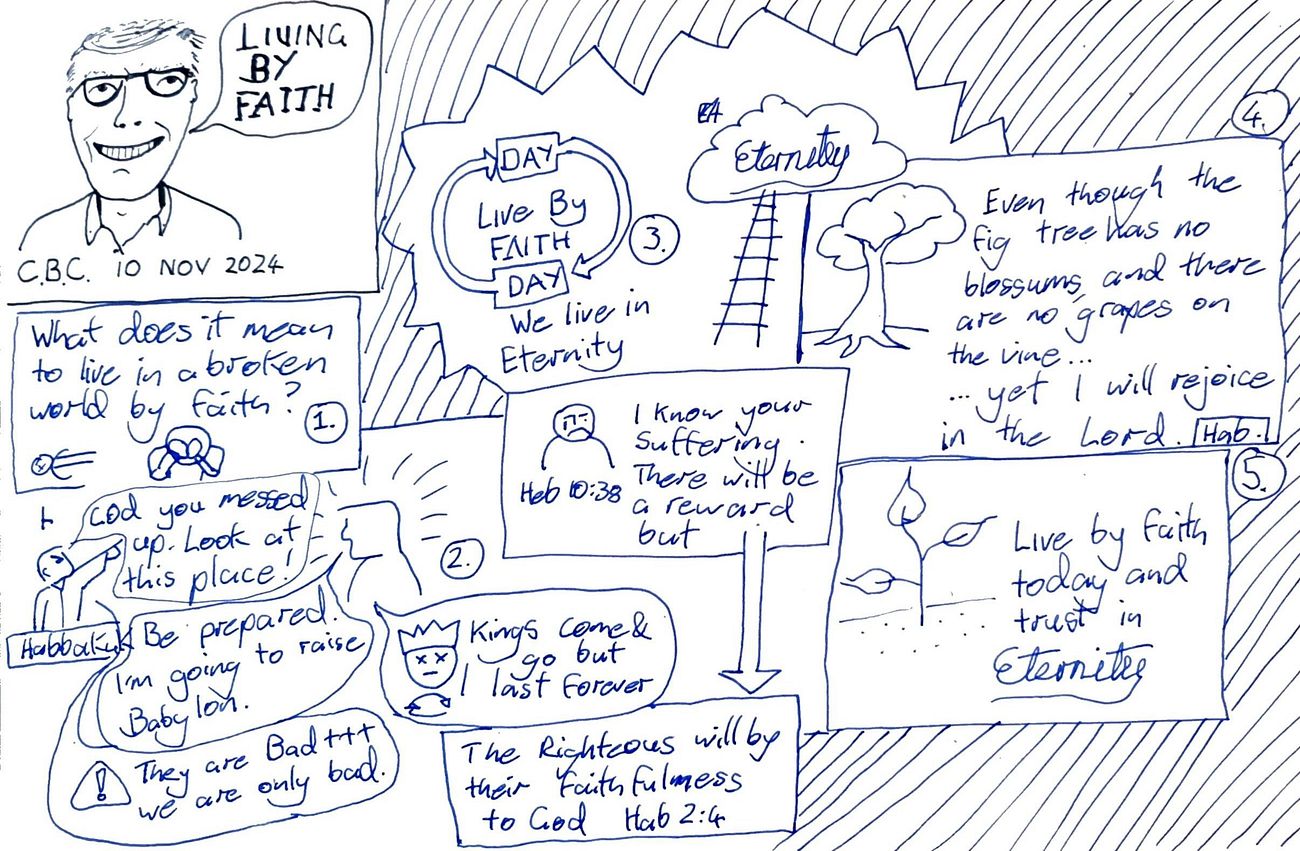 LIVING
BY
FAITH
C.B.C. 10 NOV 2024
What does it mean
to live in a broken
world by faith?
1.
God you messed
up. Look at
this place!
Habbakuk
Be prepared.
I'm going to raise
Babylon.
They are Bad+++
we are only bad.
!
2.
Kings come &
go but
I last forever
DAY
Live By
FAITH
DAY
3.
We live in
Eternity
Eternity
I know your
suffering.
There will be
a reward
but
Heb 10:38
The Righteous will by
their faithfulmess
to God Hab 2:4
4.
Even though the
fig tree has no
blossums, and there
are no grapes on
the vine...
...yet I will rejoice
in the Lord. Hab.
5.
Live by faith
today and
trust in
Eternity